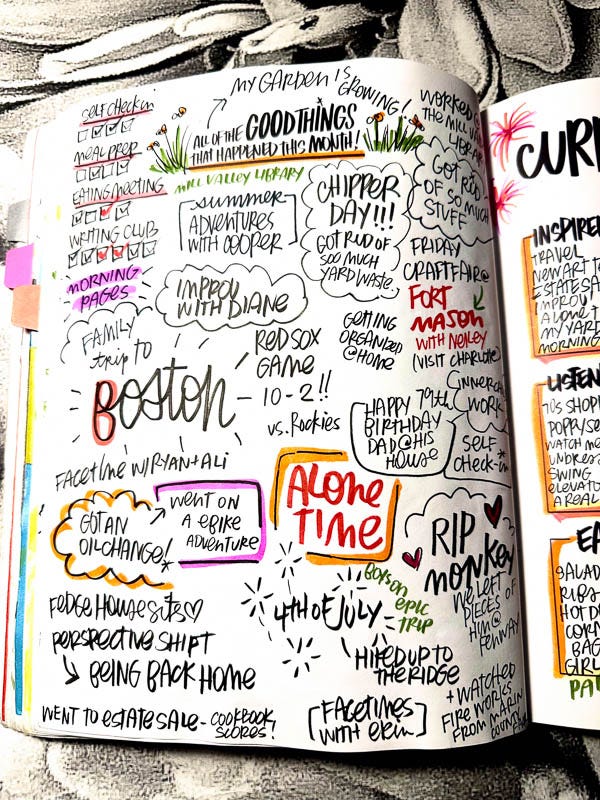 MY GARDEN IS
GROWING!
SELF CHECK IN
MEAL PREP
EATING MEETING
WRITING CLUB
MORNING
PAGES
ALL OF THE GOOD THINGS
THAT HAPPENED THIS MONTH!
MILL VALLEY LIBRARY
WORKED
THE MILL V
LIBRARY
GOT RID
OF SO MUCH
STUFF
SUMMER
ADVENTURES
WITH COOPER
CHIPPER
DAY!!!
GOT RID OF
SOO MUCH
YARD WASTE
FRIDAY
CRAFT FAIR @
FORT
MASON
WITH NENLEY
(VISIT CHARLOTE)
IMPROV
WITH DIANE
FAMILY
trip to
BOSTON
RED SOX
GAME
10-2!!
vs. Rockies
GETTING
ORGANIZED
@HOME
INNERCH
WORK
HAPPY 79th
BIRTHDAY
DAD @ HIS
HOUSE
SELF
CHECK-IN
FACETIME W/RYAN + ALI
GOT AN
OIL CHANGE!
WENT ON
A EBIKE
ADVENTURE
ALONE
TIME
RIP
MONKEY
WE LEFT
PIECES OF
HIM @
FENWAY
FEDGE HOUSE SITS
PERSPECTIVE SHIFT
BEING BACK HOME
4TH OF JULY
BOYS ON
EPIC
TRIP
HIKED UP TO
THE RIDGE
+ WATCHED
FIREWORKS
FROM MARIN
COUN
WENT TO ESTATE SALE - COOKBOOK
SCORES!
[FACETIMES
WITH ERIN]
CURR
INSPIRE
TRAVEL
NEW ART
ESTATE SA
IMPROV
ALONE T
MY YARD
MORNING
LISTEN
70s SHOP
POPPY SE
WATCH ME
UNDRES
SWING
ELEVATO
A REAL
EA
SALAD
RIBS
HOT DO
CORN
BAG
GIRL
PA